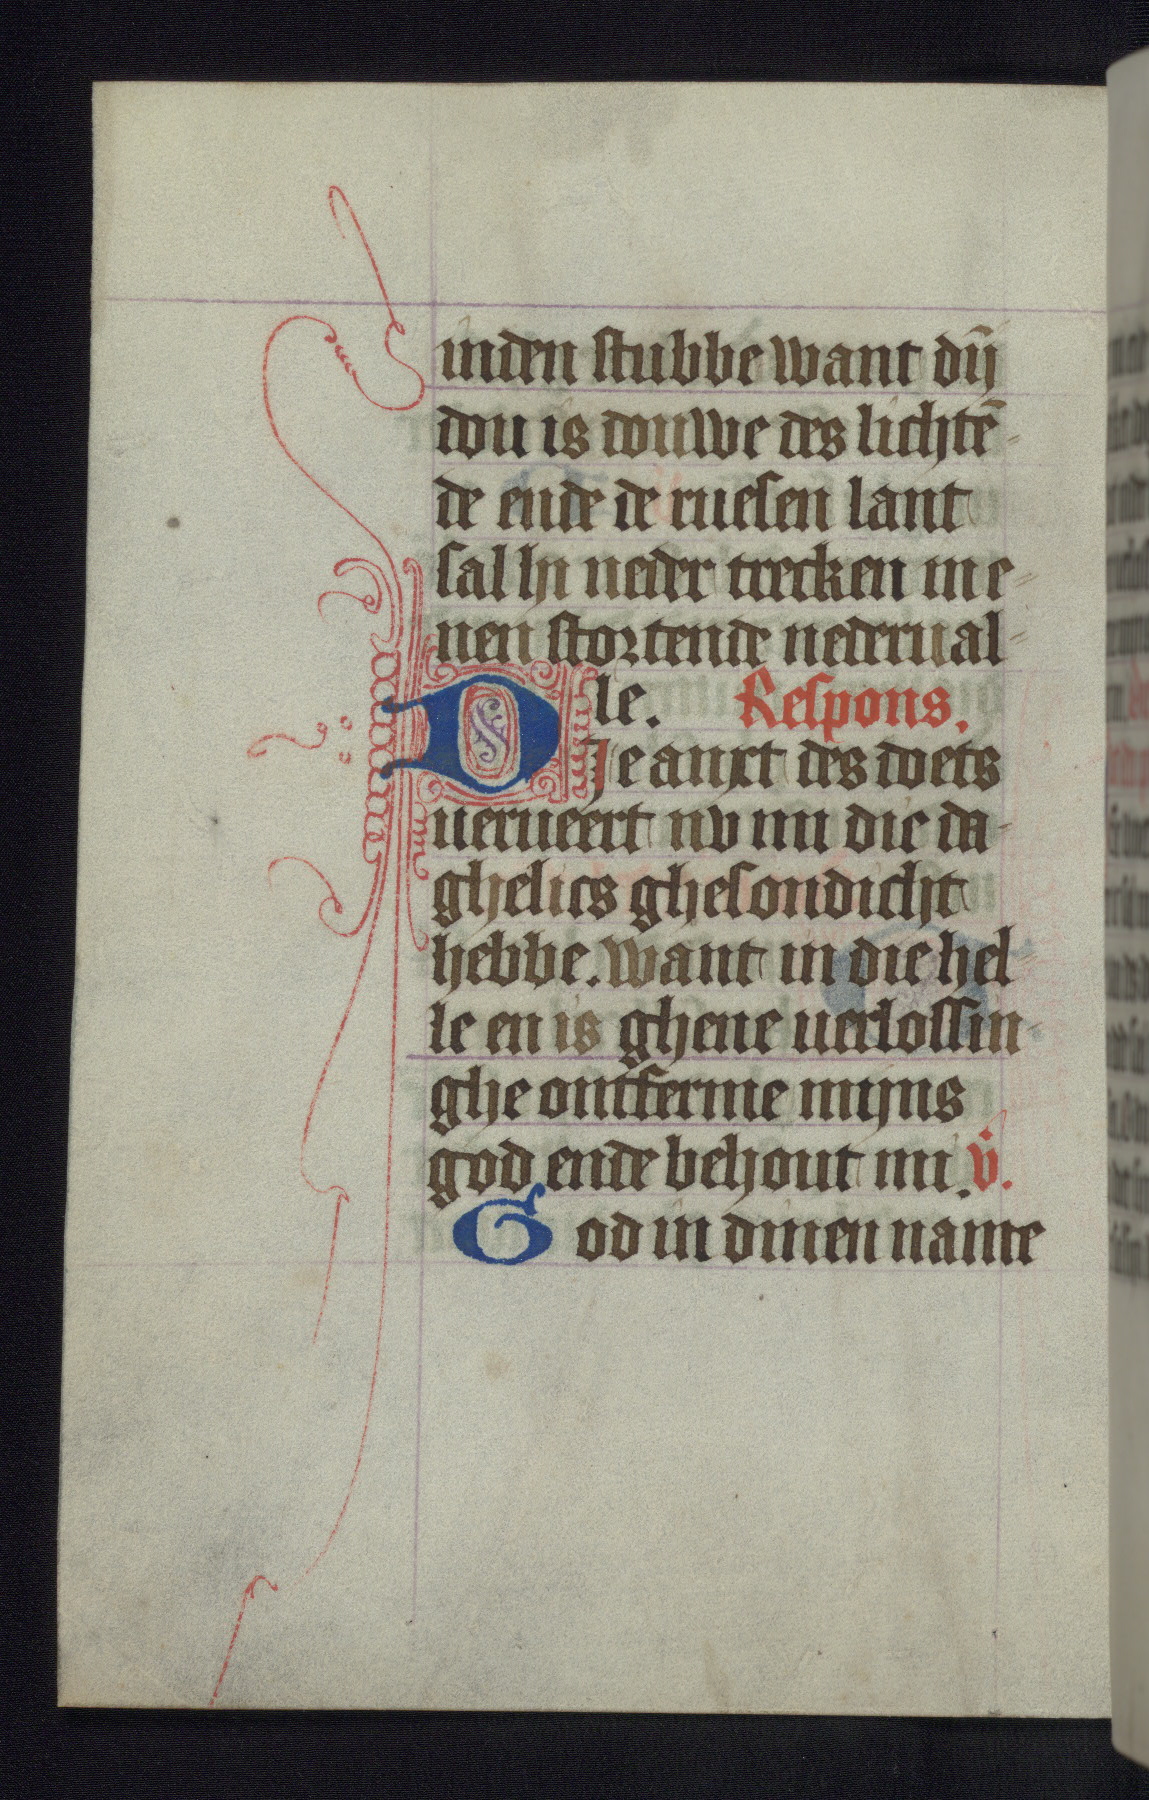 inden stubbe want dij̄
dou is douwe des lichtē-
de ende de ruesen lant
sal hi neder trecken me-
nen stortende nederual-
le. Respons.
DIe anxt des doets
uerueert nv mi die da-
ghelics ghesondicht
hebbe. want in die hel
le en is ghene uerlossin-
ghe ontferme mijns
god ende behout mi. v̄.
God in dinen name